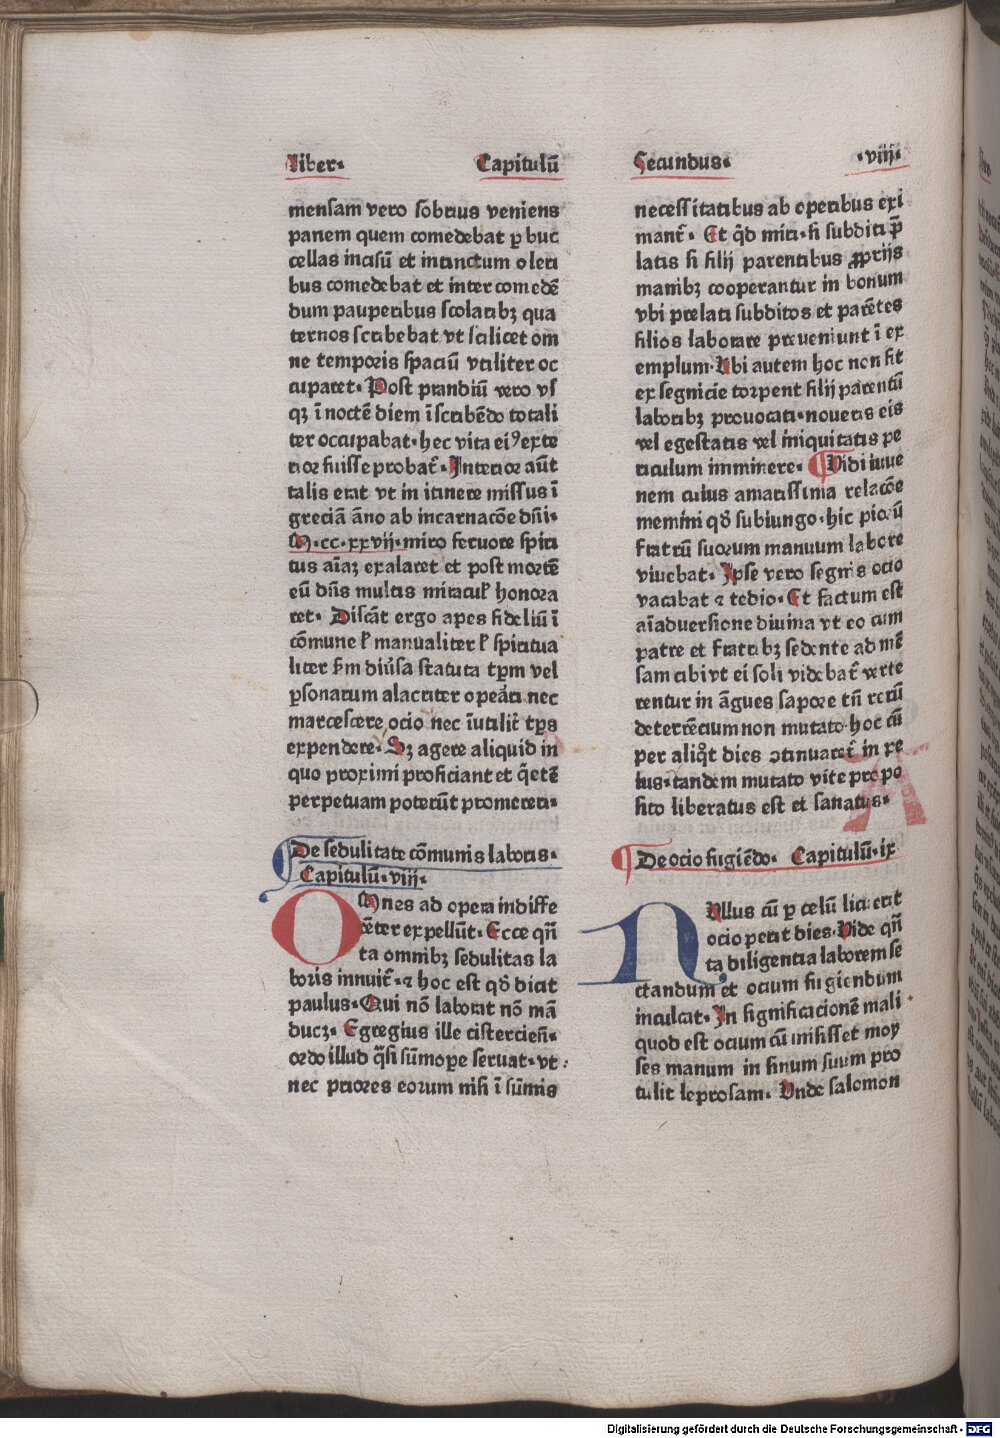 Liber· Capitulū Secundus· ·viij·
mensam vero sobrius veniens
panem quem comedebat ꝑ buc
cellas incisū et intinctum oleri
bus comedebat et inter comedē
dum pauperibus scolaribꝫ qua
ternos scribebat vt scilicet om
ne temporis spaciū vtiliter oc
cuparet· Post prandiū vero vs
qꝫ ī noctē diem ī scribēdo totali
ter occupabat· hec vita eiꝰ exte
rior fuisse probat̄· Interior aūt
talis erat vt in itinere missus ī
greciā āno ab incarnacōe dn̄i·
M·cc·xxvij·miro feruore spiri
tus aīaꝫ exalaret et post mortē
eū dn̄s multis miracul̄ honora
ret· Discāt ergo apes fideliū ī
cōmune l̄ manualiter l̄ spiritua
liter s̄m diūsa statuta tp̄m vel
ꝑsonarum alacriter oꝑari nec
marcescere ocio nec īutilit̄ tp̄s
expendere· Sꝫ agere aliquid in
quo proximi proficiant et q̄etē
perpetuam poterūt promereri·
De sedulitate cōmunis laboris·
Capitulū·viij·
OMnes ad opera indiffe
rēter expellūt· Ecce qn̄
ta omnibꝫ sedulitas la
boris innuit̄·⁊ hoc est qd̄ dicit
paulus· Qui nō laborat nō mā
ducꝫ· Egregius ille cistercien̄·
ordo illud q̄si sūmoꝑe seruat· vt:
nec priores eorum nisi ī sūmis
necessitatibus ab operibus exi
mant̄· Et qd̄ miri·si subditi p̄
latis si filij parentibus ꝓprijs
manibꝫ cooperantur in bonum
vbi prelati subditos et parētes
filios laborare preueniunt ī ex
emplum· Vbi autem hoc non fit
ex segnicie torpent filij parentū
laboribꝫ prouocati·noueris eis
vel egestatis vel iniquitatis pe
riculum imminere· Vidi iuue
nem cuius amatissima relacōe
memini qd̄ subiungo·hic pioꝝ ū
fratrū suorum manuum labore
viuebat· Ipse vero segnis ocio
vacabat ⁊ tedio· Et factum est
aīaduersione diuina vt eo cum
patre et fratribꝫ sedente ad mē
sam cibi vt ei soli videbat̄ verte
rentur in āgues sapore tn̄ rerū
deterrēcium non mutato·hoc cū
per aliq̄t dies ꝯtinuaret̄ in pe
ius·tandem mutato vite propo
sito liberatus est et sanatus·
De ocio fugiēdo· Capitulū·ix
NVllus cū ꝑ celū licuerit
ocio perit dies· Vide qn̄
ta diligentia laborem se
ctandum et ocium fugiendum
inculcat· In significacionē mali
quod est ocium cū misisset moy
ses manum in sinum suum pro
tulit leprosam· Vnde salomon
Digitalisierung gefördert durch die Deutsche Forschungsgemeinschaft - DFG